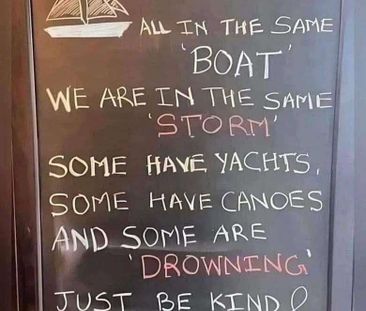 ALL IN THE SAME
'BOAT'
WE ARE IN THE SAME
'STORM'
SOME HAVE YACHTS,
SOME HAVE CANOES
AND SOME ARE
'DROWNING'
JUST BE KIND